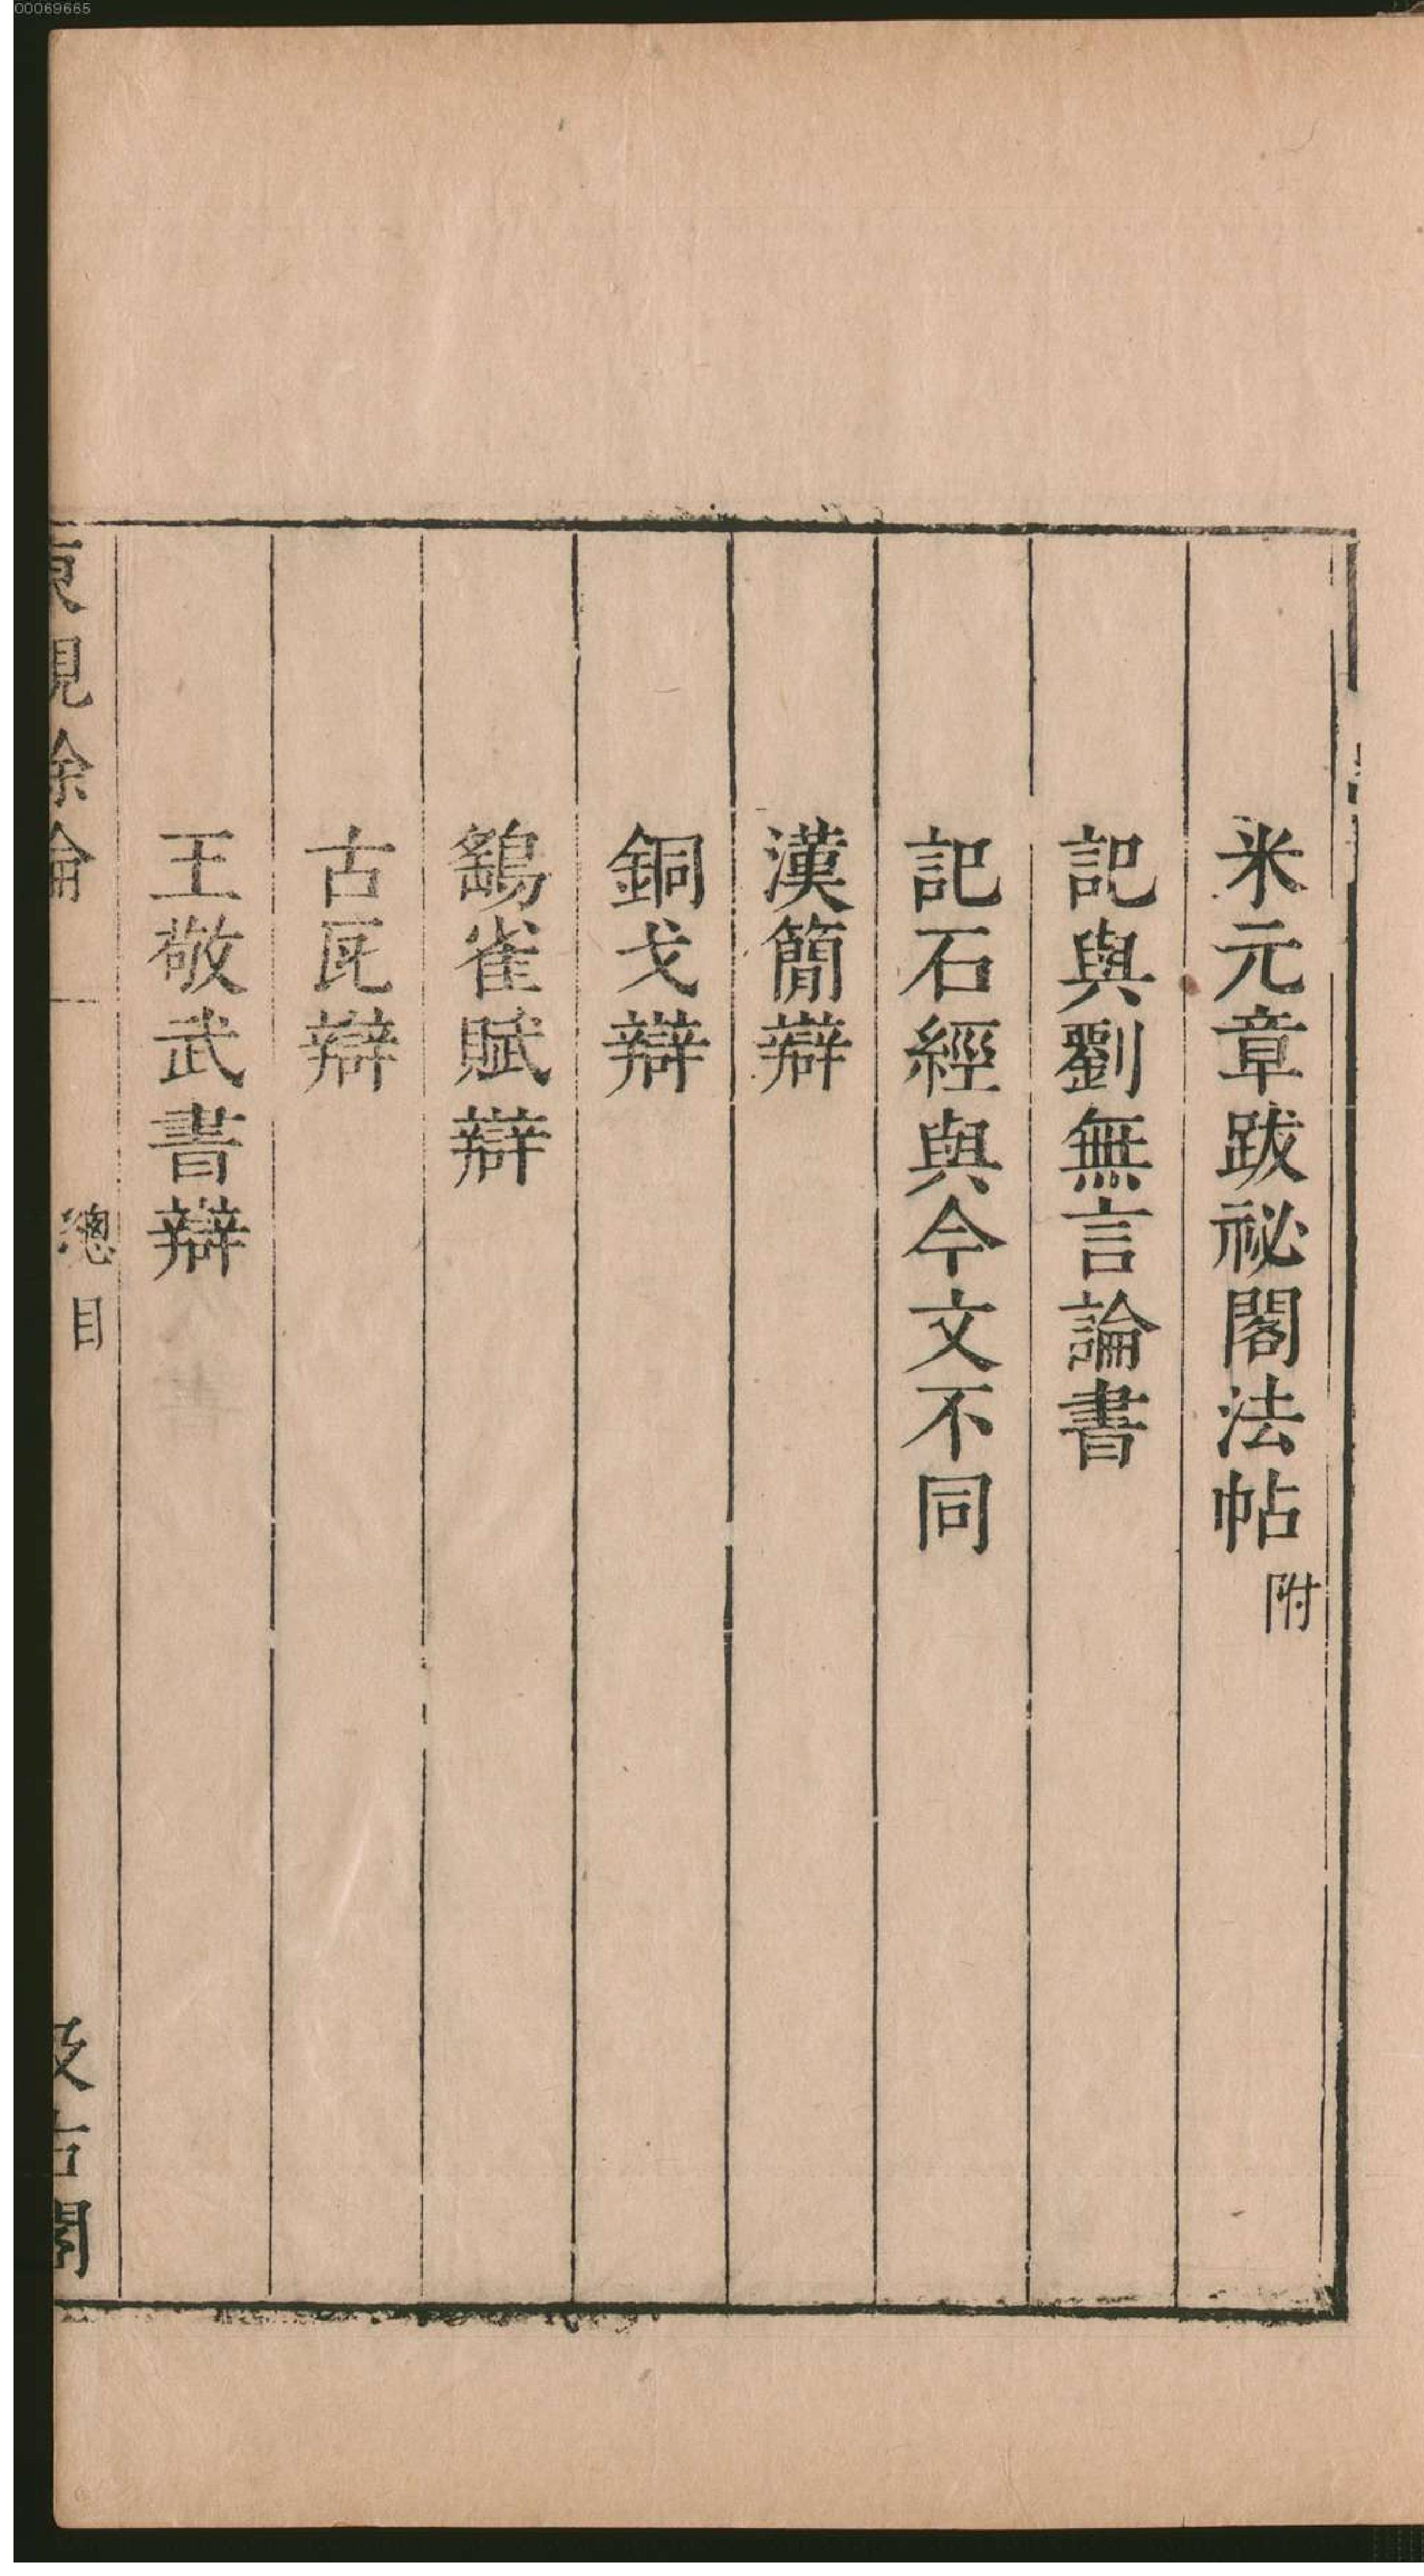 00069665
米元章跋祕閣法帖附
記與劉無言論書
記石經與今文不同
漢簡辯
銅戈辯
鷂雀賦辯
古瓦辯
王敬武書辯
東觀餘論
總目
汲古閣